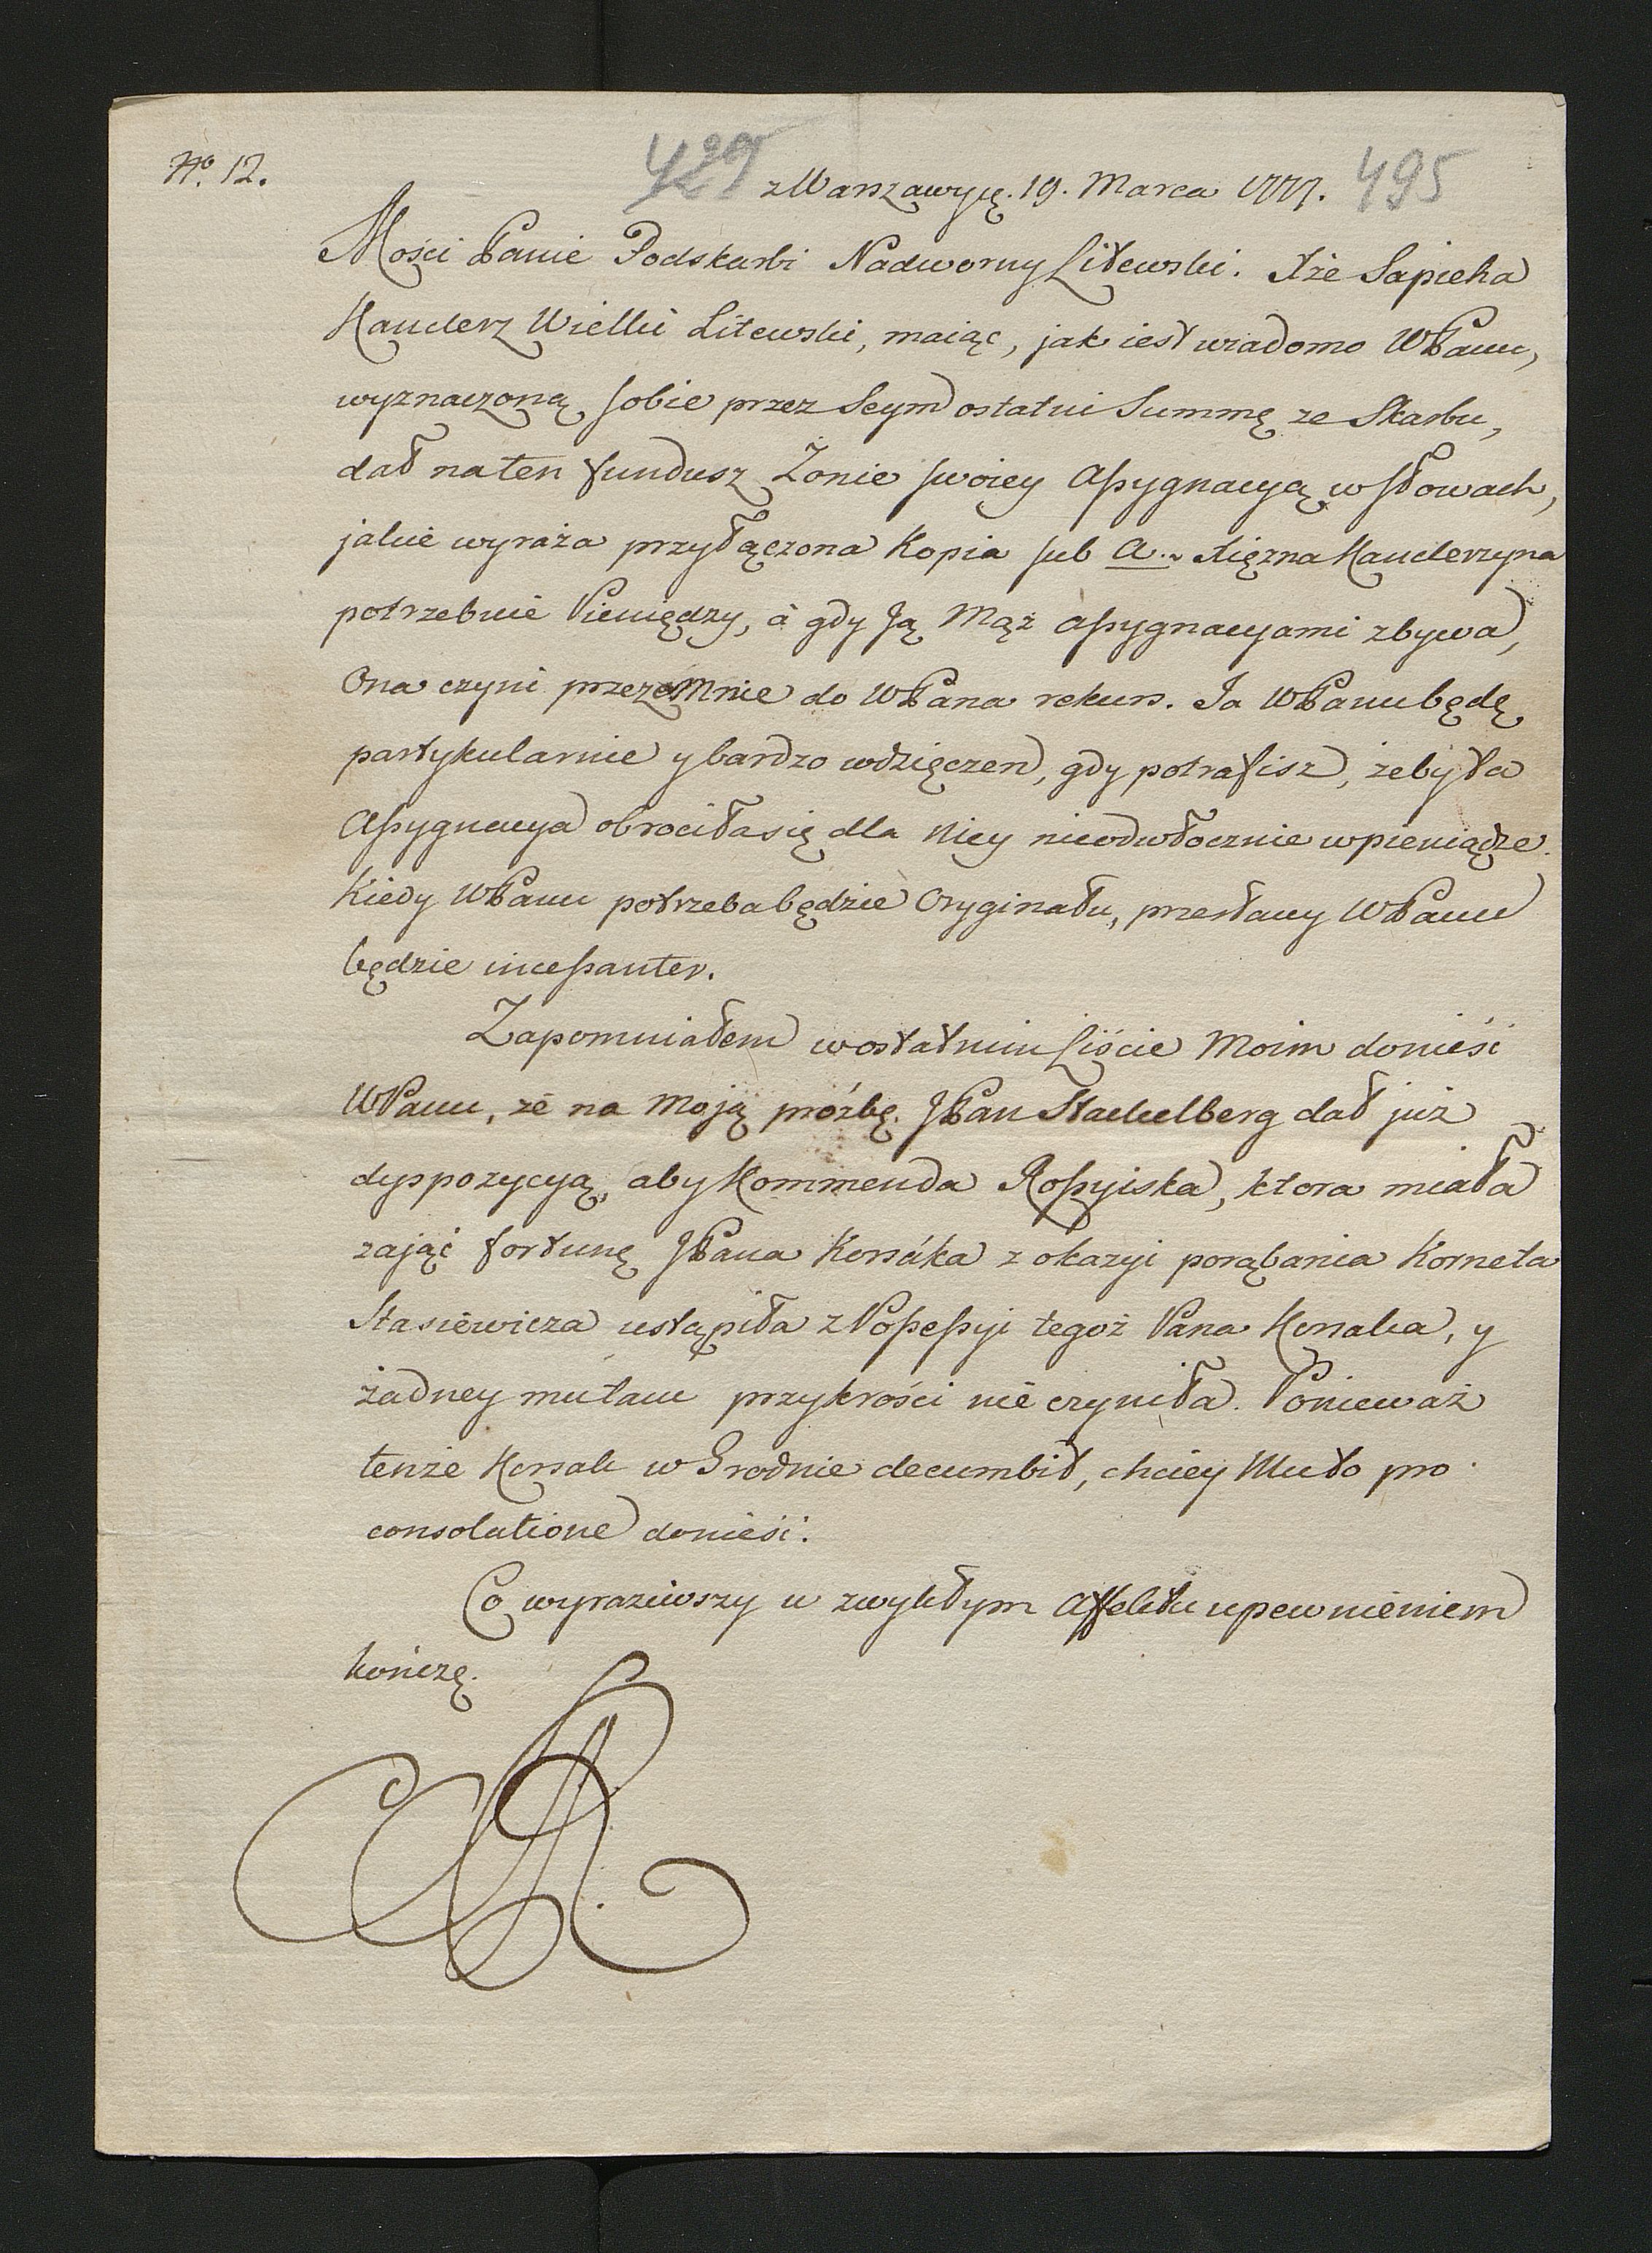 No. 12.
429
495
z Warszawy ię. 19. Marca 1777.
Mości Panie Podskarbi Nadworny Litewski. Xże Sapieha
Kanclerz Wielki Litewski, maiąc, jak iest wiadomo WPanu,
wyznaczoną sobie przez Seym ostatni Summę ze Skarbu,
dał na ten fundusz Żonie swoiey Assygnacyą w słowach,
jakie wyraża przyłączona Kopia sub A.. Xiężna Kanclerzyna
potrzebuie Pieniędzy, à gdy Ją Mąż assygnacyami zbywa,
Ona czyni przezemnie do WPana rekurs. Ja WPanu będę
partykularnie y bardzo wdzięczen, gdy potrafisz, żeby ta
Assygnacya obrociła się dla Niey nieodwłocznie w pieniądze.
Kiedy WPanu potrzeba będzie Oryginału, przesłany WPanu
będzie incessanter.
Zapomniałem w ostatnim Liście Moim donieść
WPanu, że na Moją próźbę JPan Stackelberg dał już
dyspozycyą, aby Kommenda Rossyiska, ktora miała
zająć fortunę JPana Korsáka z okazyi porąbania Korneta
Stasiewicza ustąpiła z Possessyi tegoż Pana Korsaka, y
żadney mu tam przykrości nie czyniła. Ponieważ
tenże Korsak w Grodnie decumbit, chciey Mu to pro
consolatione donieść.
Co wyraziwszy w zwykłym Affektu upewnieniem
kończę.